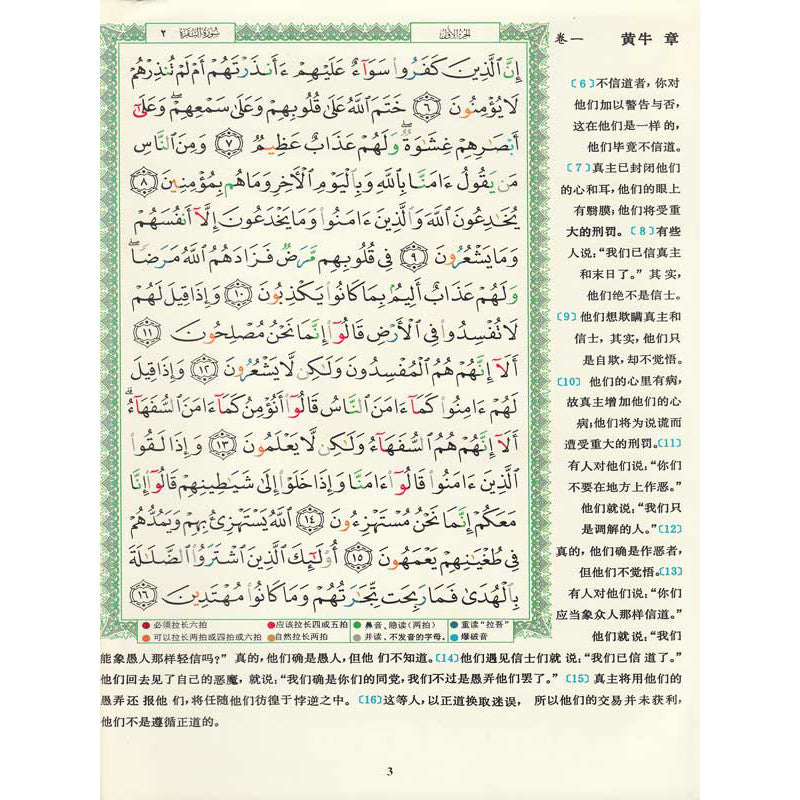 سُورَةُ البَقَرَةِ ٢
الجزء الأول
卷一 黄牛 章
إِنَّ ٱلَّذِينَ كَفَرُوا۟ سَوَآءٌ عَلَيْهِمْ ءَأَنذَرْتَهُمْ أَمْ لَمْ تُنذِرْهُمْ
لَا يُؤْمِنُونَ ٦ خَتَمَ ٱللَّهُ عَلَىٰ قُلُوبِهِمْ وَعَلَىٰ سَمْعِهِمْ ۖ وَعَلَىٰٓ
أَبْصَٰرِهِمْ غِشَٰوَةٌ ۖ وَلَهُمْ عَذَابٌ عَظِيمٌ ٧ وَمِنَ ٱلنَّاسِ
مَن يَقُولُ ءَامَنَّا بِٱللَّهِ وَبِٱلْيَوْمِ ٱلْءَاخِرِ وَمَا هُم بِمُؤْمِنِينَ ٨
يُخَٰدِعُونَ ٱللَّهَ وَٱلَّذِينَ ءَامَنُوا۟ وَمَا يَخْدَعُونَ إِلَّآ أَنفُسَهُمْ
وَمَا يَشْعُرُونَ ٩ فِى قُلُوبِهِم مَّرَضٌ فَزَادَهُمُ ٱللَّهُ مَرَضًا ۖ
وَلَهُمْ عَذَابٌ أَلِيمٌۢ بِمَا كَانُوا۟ يَكْذِبُونَ ١٠ وَإِذَا قِيلَ لَهُمْ
لَا تُفْسِدُوا۟ فِى ٱلْأَرْضِ قَالُوٓا۟ إِنَّمَا نَحْنُ مُصْلِحُونَ ١١
أَلَآ إِنَّهُمْ هُمُ ٱلْمُفْسِدُونَ وَلَٰكِن لَّا يَشْعُرُونَ ١٢ وَإِذَا قِيلَ
لَهُمْ ءَامِنُوا۟ كَمَآ ءَامَنَ ٱلنَّاسُ قَالُوٓا۟ أَنُؤْمِنُ كَمَآ ءَامَنَ ٱلسُّفَهَآءُ ۗ
أَلَآ إِنَّهُمْ هُمُ ٱلسُّفَهَآءُ وَلَٰكِن لَّا يَعْلَمُونَ ١٣ وَإِذَا لَقُوا۟
ٱلَّذِينَ ءَامَنُوا۟ قَالُوٓا۟ ءَامَنَّا وَإِذَا خَلَوْا۟ إِلَىٰ شَيَٰطِينِهِمْ قَالُوٓا۟ إِنَّا
مَعَكُمْ إِنَّمَا نَحْنُ مُسْتَهْزِءُونَ ١٤ ٱللَّهُ يَسْتَهْزِئُ بِهِمْ وَيَمُدُّهُمْ
فِى طُغْيَٰنِهِمْ يَعْمَهُونَ ١٥ أُو۟لَٰٓئِكَ ٱلَّذِينَ ٱشْتَرَوُا۟ ٱلضَّلَٰلَةَ
بِٱلْهُدَىٰ فَمَا رَبِحَت تِّجَٰرَتُهُمْ وَمَا كَانُوا۟ مُهْتَدِينَ ١٦
必须拉长六拍 应该拉长四或五拍 鼻音、隐读（两拍） 重读“拉吾”
可以拉长两拍或四拍或六拍 自然拉长两拍 并读、不发音的字母。 爆破音
〔6〕不信道者，你对
他们加以警告与否，
这在他们是一样的，
他们毕竟不信道。
〔7〕真主已封闭他们
的心和耳，他们的眼上
有翳膜；他们将受重
大的刑罚。〔8〕有些
人说：“我们已信真主
和末日了。”其实，
他们绝不是信士。
〔9〕他们想欺瞒真主和
信士，其实，他们只
是自欺，却不觉悟。
〔10〕 他们的心里有病，
故真主增加他们的心
病；他们将为说谎而
遭受重大的刑罚。〔11〕
有人对他们说：“你们
不要在地方上作恶。”
他们就说：“我们只
是调解的人。”〔12〕
真的，他们确是作恶者，
但他们不觉悟。〔13〕
有人对他们说：“你们
应当象众人那样信道。”
他们就说：“我们
能象愚人那样轻信吗？” 真的，他们确是愚人，但他们不知道。〔14〕他们遇见信士们就 说：“我们已信道了。”
他们回去见了自己的恶魔，就说：“我们确是你们的同党，我们不过是愚弄他们罢了。”〔15〕真主将用他们的
愚弄还 报他们，将任随他们彷徨于悖逆之中。〔16〕这等人，以正道换取迷误， 所以他们的交易并未获利，
他们不是遵循正道的。
3